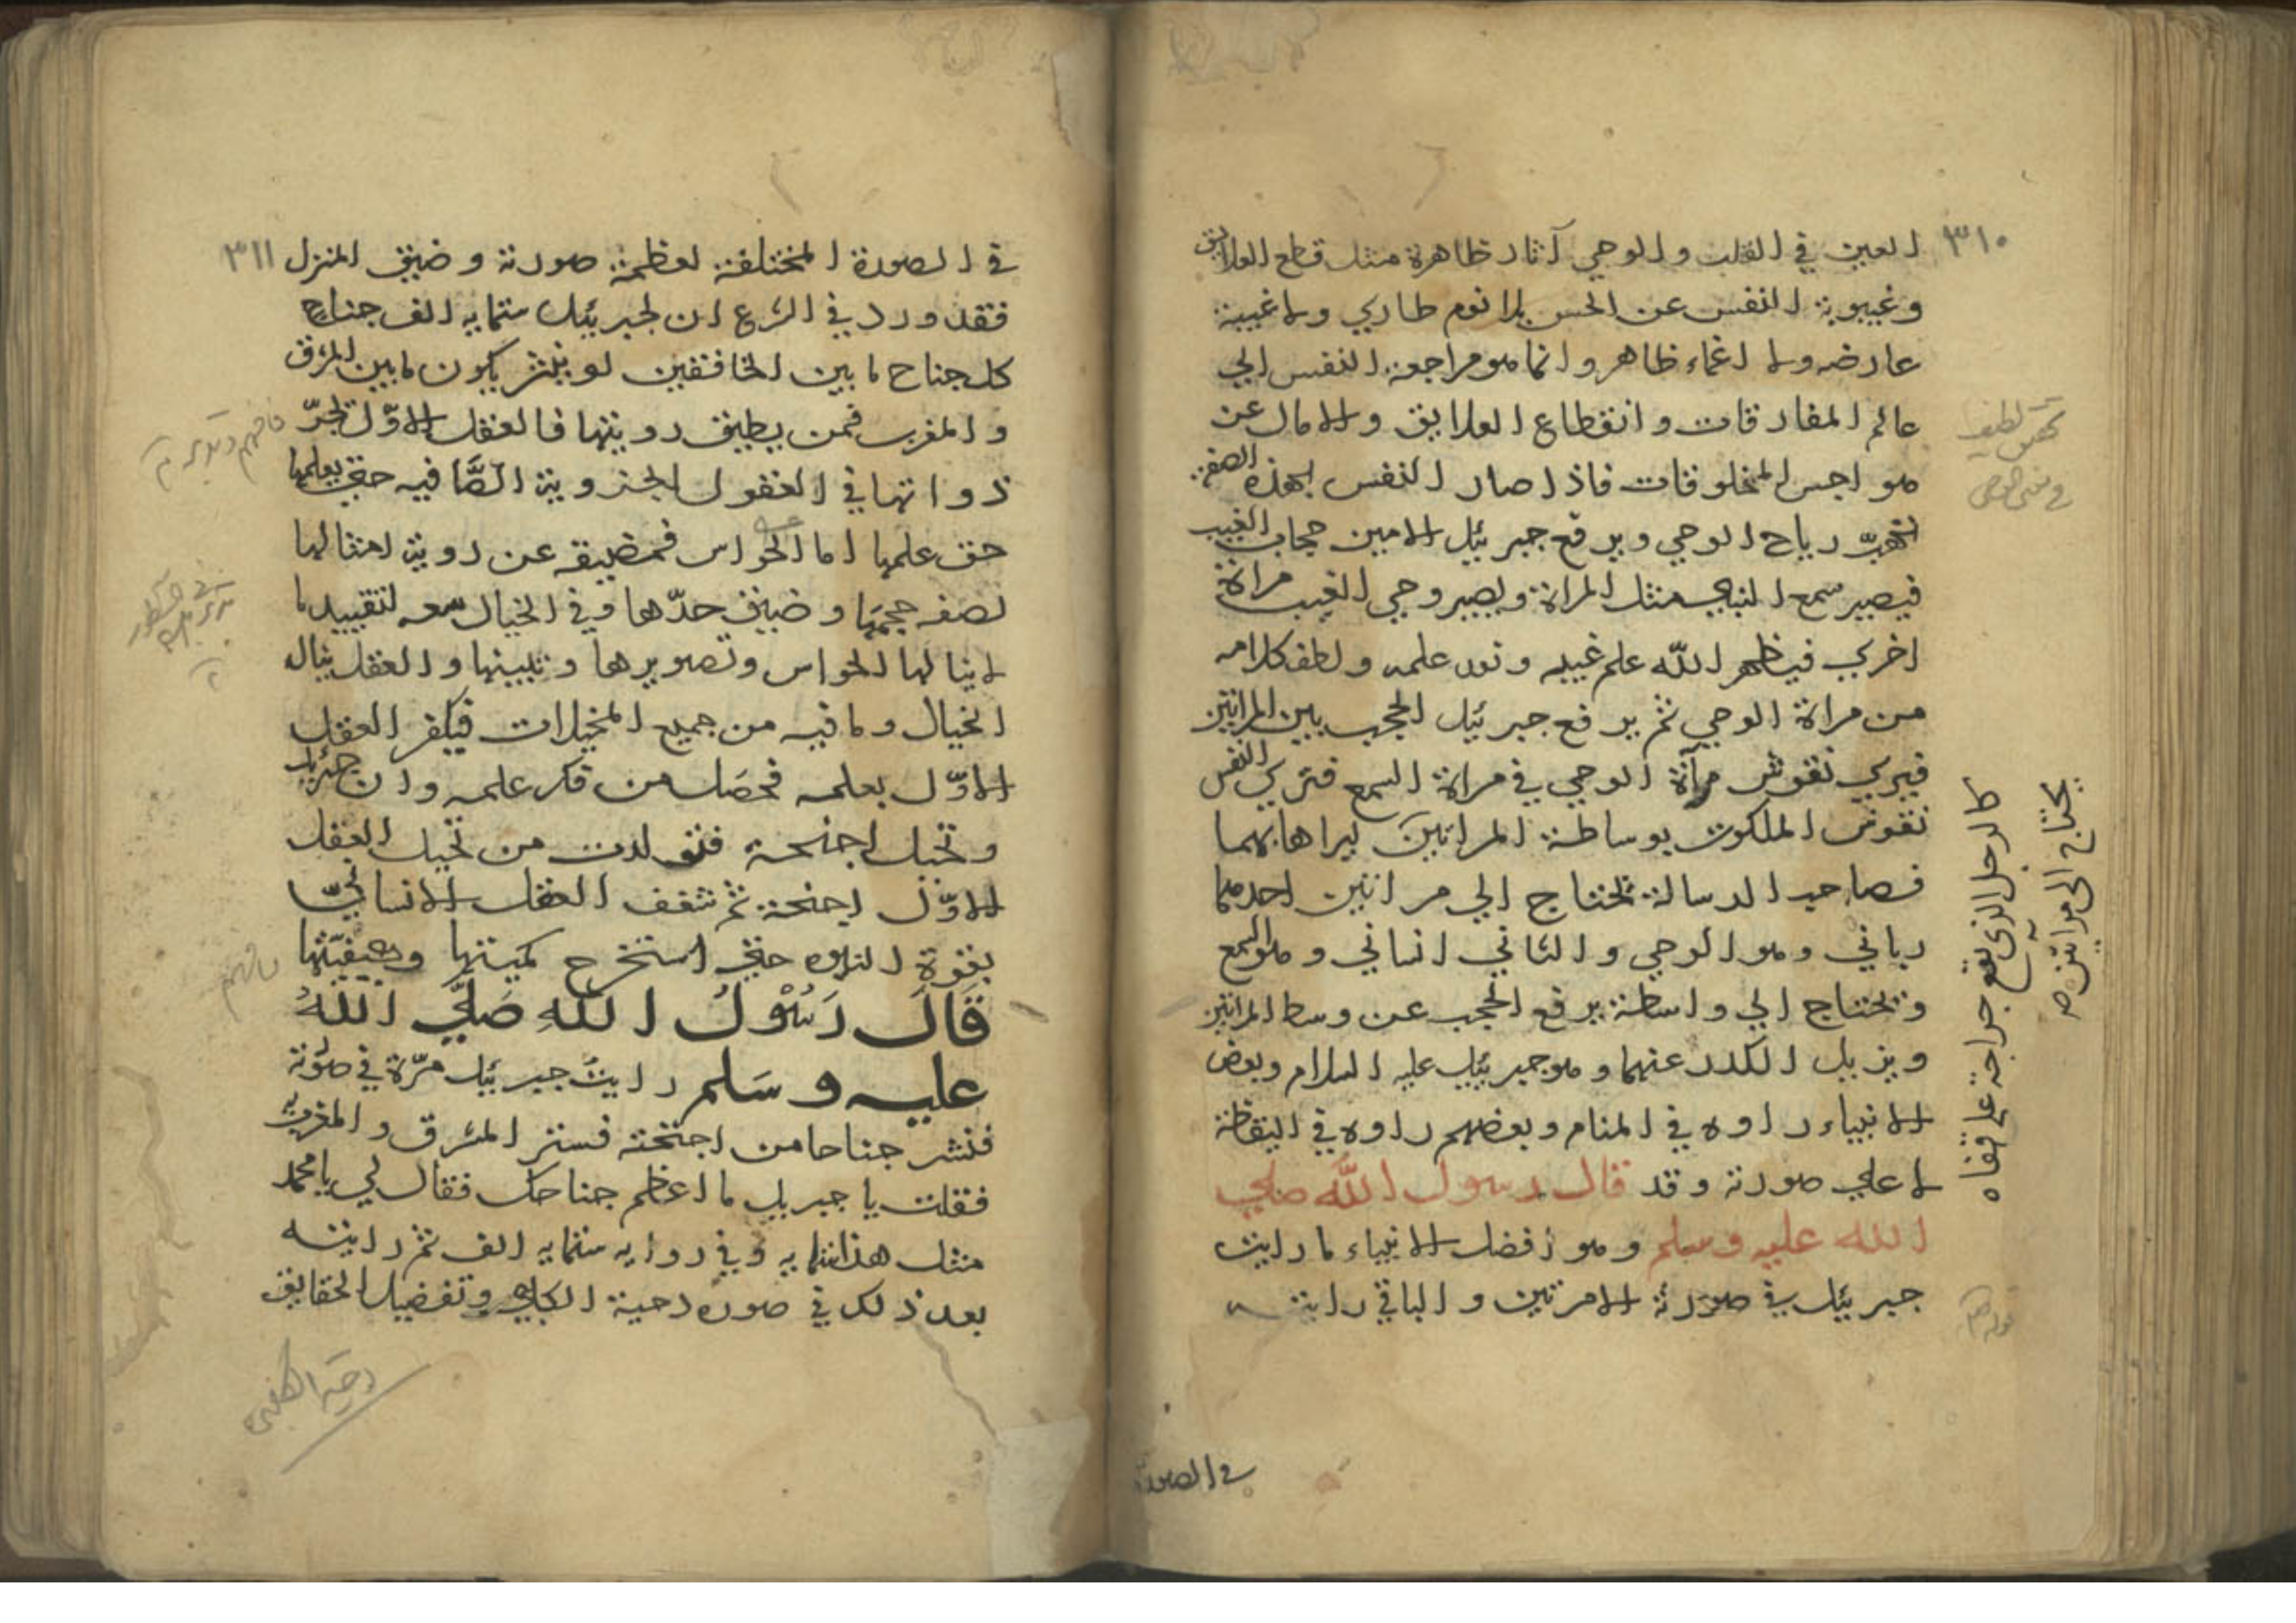 ٣١٠
العين في القلب والوحي آثار ظاهرة مثل قطع العلايق
وغيبوبة النفس عن الحس بلا نوم طاري ولا غيبة
عارضه ولا اغماء ظاهر وانما هو مراجعة النفس الي
عالم المفارقات وانقطاع العلايق والامال عن
هواجس المخلوقات فاذا صار النفس بهذه الصفة
تهب رياح الوحي ويرفع جبرئيل الامين حجاب الغيب
فيصير سمع النبي مثل المراة ويصير وحي الغيب مراة
اخري فيظهر الله علم غيبه ونور علمه ولطف كلامه
من مراة الوحي ثم يرفع جبرئيل الحجب بين المراتين
فيري نقوش مرآة الوحي في مراة السمع فتري النفس
نقوش الملكوت بوساطة المراتين ليراها بهما
فصاحب الرسالة تحتاج الي مراتين احدهما
رباني وهو الوحي والثاني انساني وهو السمع
وتحتاج الي واسطة يرفع الحجب عن وسط المراتين
ويزيل الكدر عنهما وهو جبرئيل عليه السلام وبعض
الانبياء راوه في المنام وبعضهم راوه في اليقظة
لا علي صورته وقد قال رسول الله صلي
الله عليه وسلم وهو افضل الانبياء ما رايت
جبرئيل في صورته الا مرتين والباقي رايته
كالرجل الذي تقع جراحة علي قفاه
يحتاج الي مراتين
في الصورة
٣١١
في الصورة المختلفة لعظمة صورته وضيق المنزل
فقد ورد في الشرع ان لجبرئيل ستمايه الف جناح
كل جناح ما بين الخافقين لو ينشر يكون ما بين المشرق
والمغرب فمن يطيق رويتها فالعقل الاول تجر
ذواتها في العقول الجزوية الصافيه حتي يعلمها
حق علمها اما الحواس فمضيقه عن روية امثالها
لصغر حجمها وضيق حدها وفي الخيال سعه لتقييد ما
لا ينالها الحواس وتصويرها وتبيينها والعقل ينال
الخيال وما فيه من جميع المخيلات فيكفر العقل
الاول بعلمه فحصل من فكر علمه وان جبرئيل
وتخيل اجنحة فتولدت من تخيل العقل
الاول اجنحة ثم شغف العقل الانساني
بقوة النبوه حتي استخرج كميتها وكيفيتها
قَالَ رَسُوْلُ اللهِ صَلَّي اللهُ
عليه وسَلم رايت جبرئيل مرّة في صورته
فنشر جناحا من اجنحته فستر المشرق والمغرب
فقلت يا جبريل ما اعظم جناحك فقال لي يا محمد
مثل هذا ستمايه وفي روايه ستمايه الف ثم رايته
بعد ذلك في صورة دحية الكلبي وتفضيل الحقايق
دحية الكلبي